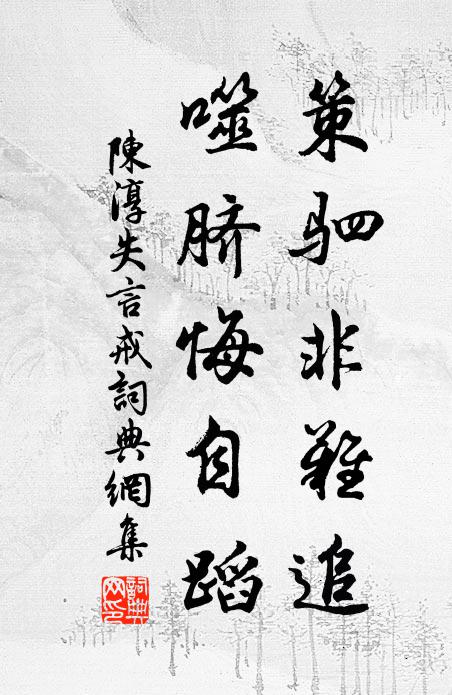 策駟非難追
噬脐悔自蹈
陳淳失言戒詞典網集